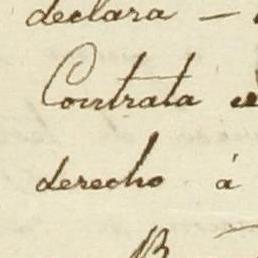 declara —
Contrata
derecho á